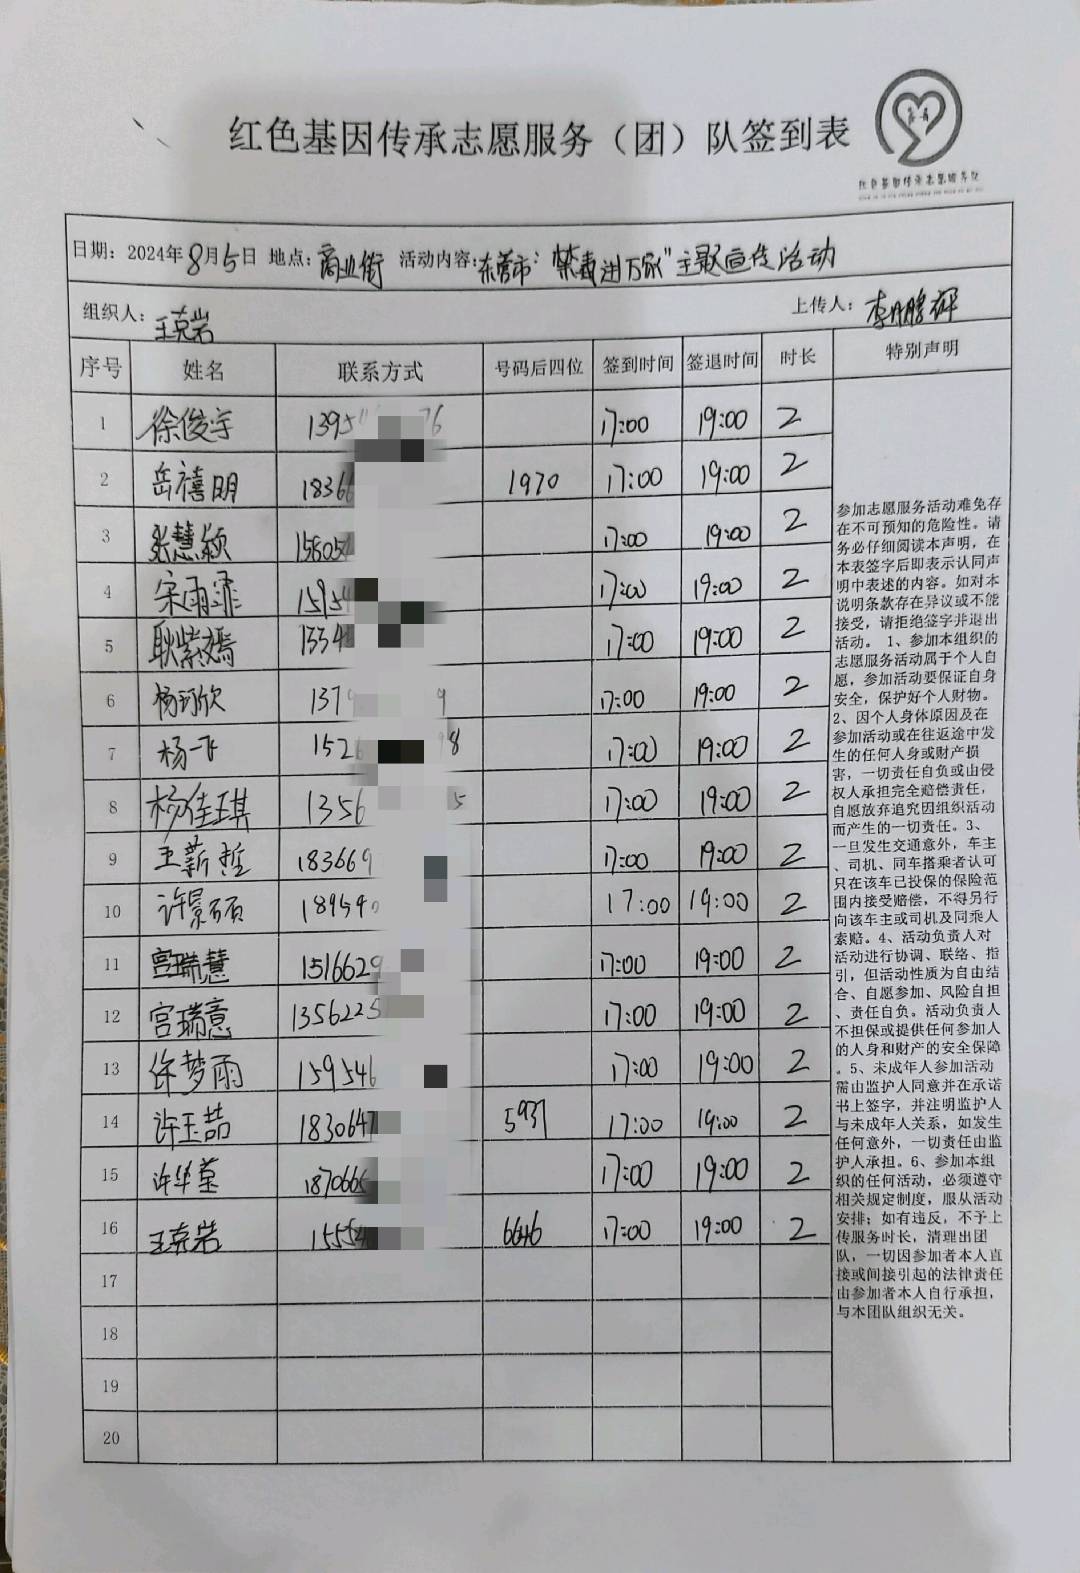 红色基因传承志愿服务（团）队签到表
红色基因传承志愿服务队
日期：2024年8月5日 地点：商业街 活动内容：东营市“禁毒进万家”主题宣传活动
组织人：王克岩 上传人：李鹏辉
序号 姓名 联系方式 号码后四位 签到时间 签退时间 时长 特别声明
1 徐俊宇 1395 76 17:00 19:00 2
2 岳禧明 18366 1970 17:00 19:00 2
3 张慧颖 158054 17:00 19:00 2
4 宋雨霏 15954 17:00 19:00 2
5 耿紫嫣 1334 17:00 19:00 2
6 杨珂欣 1379 9 17:00 19:00 2
7 杨一飞 1526 98 17:00 19:00 2
8 杨佳琪 1356 5 17:00 19:00 2
9 王薪哲 183669 17:00 19:00 2
10 许景硕 189540 17:00 19:00 2
11 宫瑞慧 1516629 17:00 19:00 2
12 宫瑞意 1356225 17:00 19:00 2
13 徐梦雨 159546 17:00 19:00 2
14 许玉喆 1830647 5937 17:00 19:00 2
15 许华莹 1870665 17:00 19:00 2
16 王克岩 15554 6646 17:00 19:00 2
17
18
19
20
参加志愿服务活动难免存
在不可预知的危险性。请
务必仔细阅读本声明，在
本表签字后即表示认同声
明中表述的内容。如对本
说明条款存在异议或不能
接受，请拒绝签字并退出
活动。 1、参加本组织的
志愿服务活动属于个人自
愿，参加活动要保证自身
安全，保护好个人财物。
2、因个人身体原因及在
参加活动或在往返途中发
生的任何人身或财产损
害，一切责任自负或由侵
权人承担完全赔偿责任，
自愿放弃追究因组织活动
而产生的一切责任。3、
一旦发生交通意外，车主
、司机、同车搭乘者认可
只在该车已投保的保险范
围内接受赔偿，不得另行
向该车主或司机及同乘人
索赔。4、活动负责人对
活动进行协调、联络、指
引，但活动性质为自由结
合、自愿参加、风险自担
、责任自负。活动负责人
不担保或提供任何参加人
的人身和财产的安全保障
。5、未成年人参加活动
需由监护人同意并在承诺
书上签字，并注明监护人
与未成年人关系，如发生
任何意外，一切责任由监
护人承担。6、参加本组
织的任何活动，必须遵守
相关规定制度，服从活动
安排；如有违反，不予上
传服务时长，清理出团
队，一切因参加者本人直
接或间接引起的法律责任
由参加者本人自行承担，
与本团队组织无关。